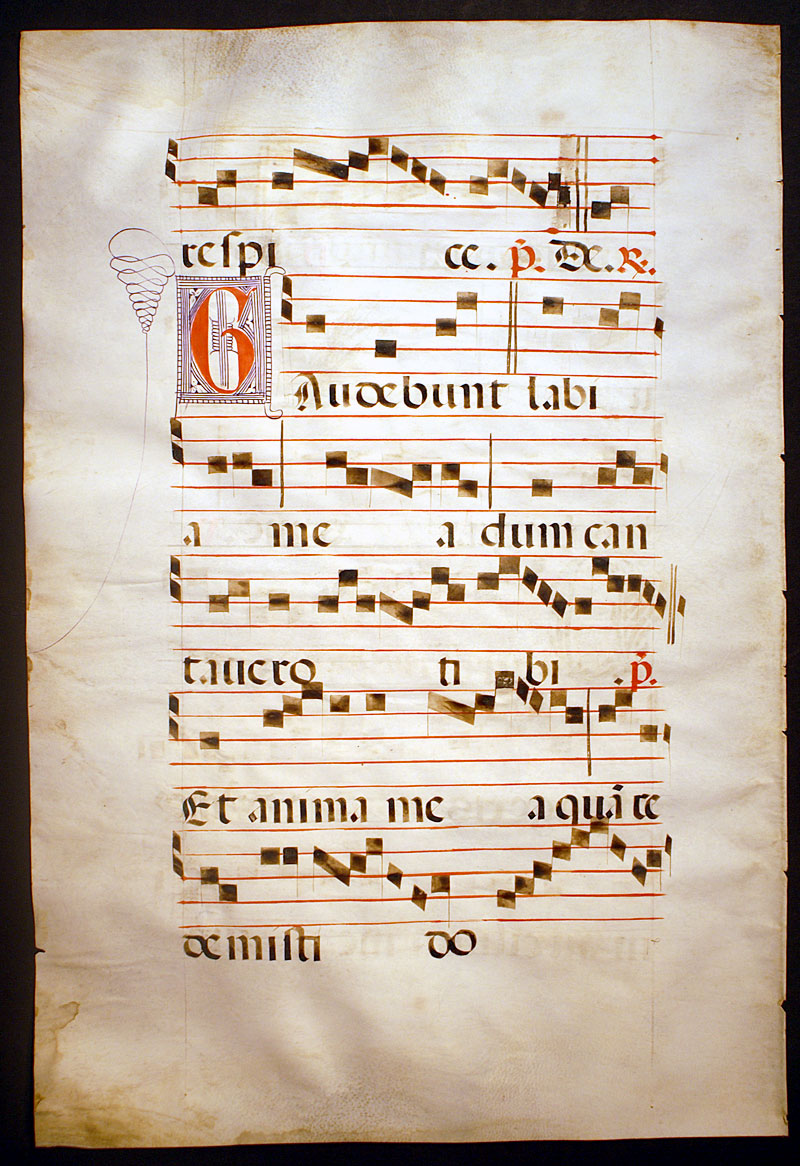 respi ce. p̃. De. R.
GAudebunt labi
a me a dum can
tavero ti bi . p̃.
Et anima me a quã re
demisti do